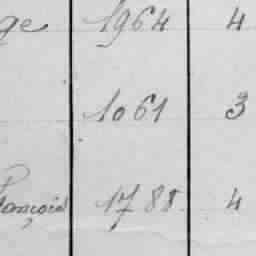 ge 1964 4
1061 3
François 1788 4